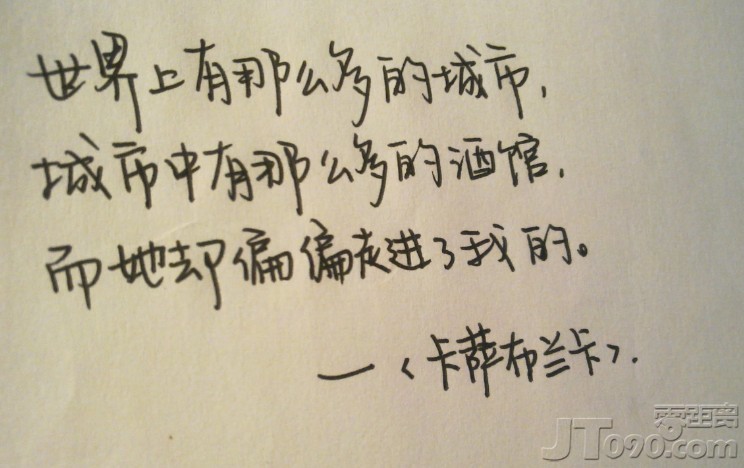 世界上有那么多的城市，
城市中有那么多的酒馆，
而她却偏偏走进了我的。
—〈卡萨布兰卡〉.
JT090.com